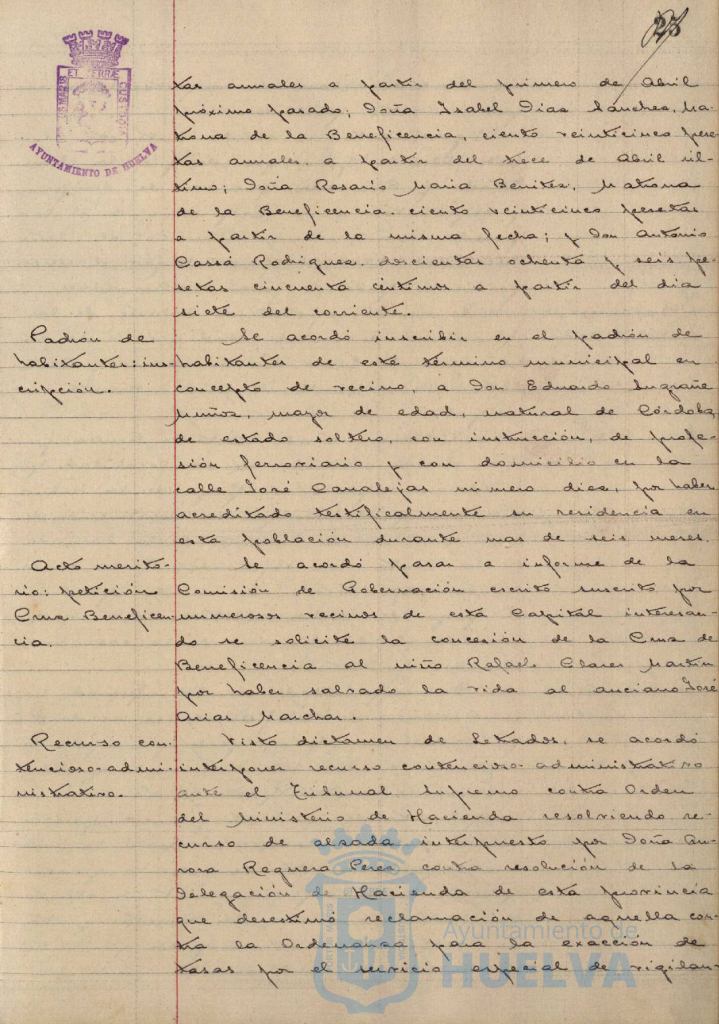 tas anuales a partir del primero de Abril
próximo pasado; Doña Isabel Dias Sanchez, Ma-
trona de la Beneficencia, ciento veinticinco pese-
tas anuales, a partir del trece de Abril úl-
timo; Doña Rosario Maria Benitez, Matrona
de la Beneficencia. ciento veinticinco pesetas
a partir de la misma fecha; y Don Antonio
Cassá Rodriguez. doscientas ochenta y seis pe-
setas cincuenta centimos a partir del dia
siete del corriente.
Padrón de
habitantes: ins-
cripción.
Se acordó inscribir en el padrón de
habitantes de este término municipal en
concepto de vecino, a Don Eduardo Lugrañe
Muñoz, mayor de edad, natural de Córdoba,
de estado soltero, con instrucción, de profe-
sión ferroviario y con domicilio en la
calle José Canalejas número diez, por haber
acreditado testificalmente su residencia en
esta población durante mas de seis meses.
Acto merito-
rio: petición
Cruz Beneficen-
cia.
Se acordó pasar a informe de la
Comisión de Gobernación escrito suscrito por
numerosos vecinos de esta Capital interesan-
do se solicite la concesión de la Cruz de
Beneficencia al niño Rafael Clares Martin
por haber salvado la vida al anciano José
Arias Marchar.
Recurso con-
tencioso-admi-
nistrativo.
Visto dictamen de Letrados, se acordó
interponer recurso contencioso-administrativo
ante el Tribunal Supremo contra Orden
del Ministerio de Hacienda resolviendo re-
curso de alzada interpuesto por Doña Au-
rora Requera Perez contra resolución de la
Delegación de Hacienda de esta provincia
que desestimó reclamación de aquella con-
tra la Ordenanza para la exacción de
tasas por el servicio especial de vigilan-
AYUNTAMIENTO DE HUELVA
Ayuntamiento de
HUELVA